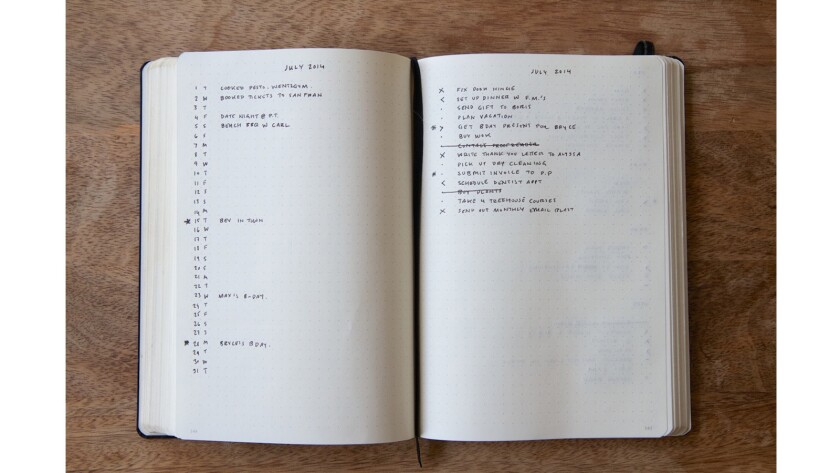 JULY 2014
1 T COOKED PESTO. WENT GYM.
2 W BOOKED TICKETS TO SAN FRAN
3 T
4 F DATE NIGHT @ P.T.
5 S BEACH BBQ W CARL
6 S
7 M
8 T
9 W
10 T
11 F
12 S
13 S
14 M
* 15 T BEV IN TOWN
16 W
17 T
18 F
19 S
20 S
21 M
22 T
23 W MAY'S B-DAY.
24 T
25 F
26 S
28 M BRYCE'S BDAY.
29 T
30 W
31 T
JULY 2014
X FIX DOOR HINGE
< SET UP DINNER W F.M.'S
· SEND GIFT TO BORIS
· PLAN VACATION
* > GET BDAY PRESENT FOR BRYCE
· BUY WOK
CONTACT PROOFREADER
X WRITE THANK YOU LETTER TO ALYSSA
· PICK UP DRY CLEANING
* · SUBMIT INVOICE TO P.P
< SCHEDULE DENTIST APPT
BUY PLANTS
· TAKE 4 TREEHOUSE COURSES
X SEND OUT MONTHLY EMAIL BLAST